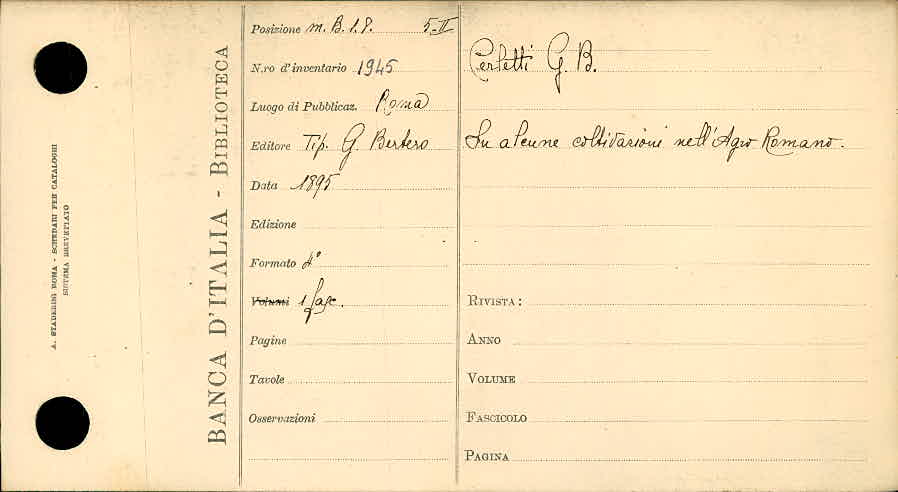 A. STADERINI ROMA - SCHEDARI PER CATALOGHI
SISTEMA BREVETTATO
BANCA D'ITALIA - BIBLIOTECA
Posizione M. B. 1. 8. 5-II
N.ro d'inventario 1945
Luogo di Pubblicaz. Roma
Editore Tip. G Bertero
Data 1895
Edizione
Formato 4°
Volumi 1 fasc.
Pagine
Tavole
Osservazioni
Cerletti G. B.
Su alcune coltivazioni nell'Agro Romano.
RIVISTA:
ANNO
VOLUME
FASCICOLO
PAGINA